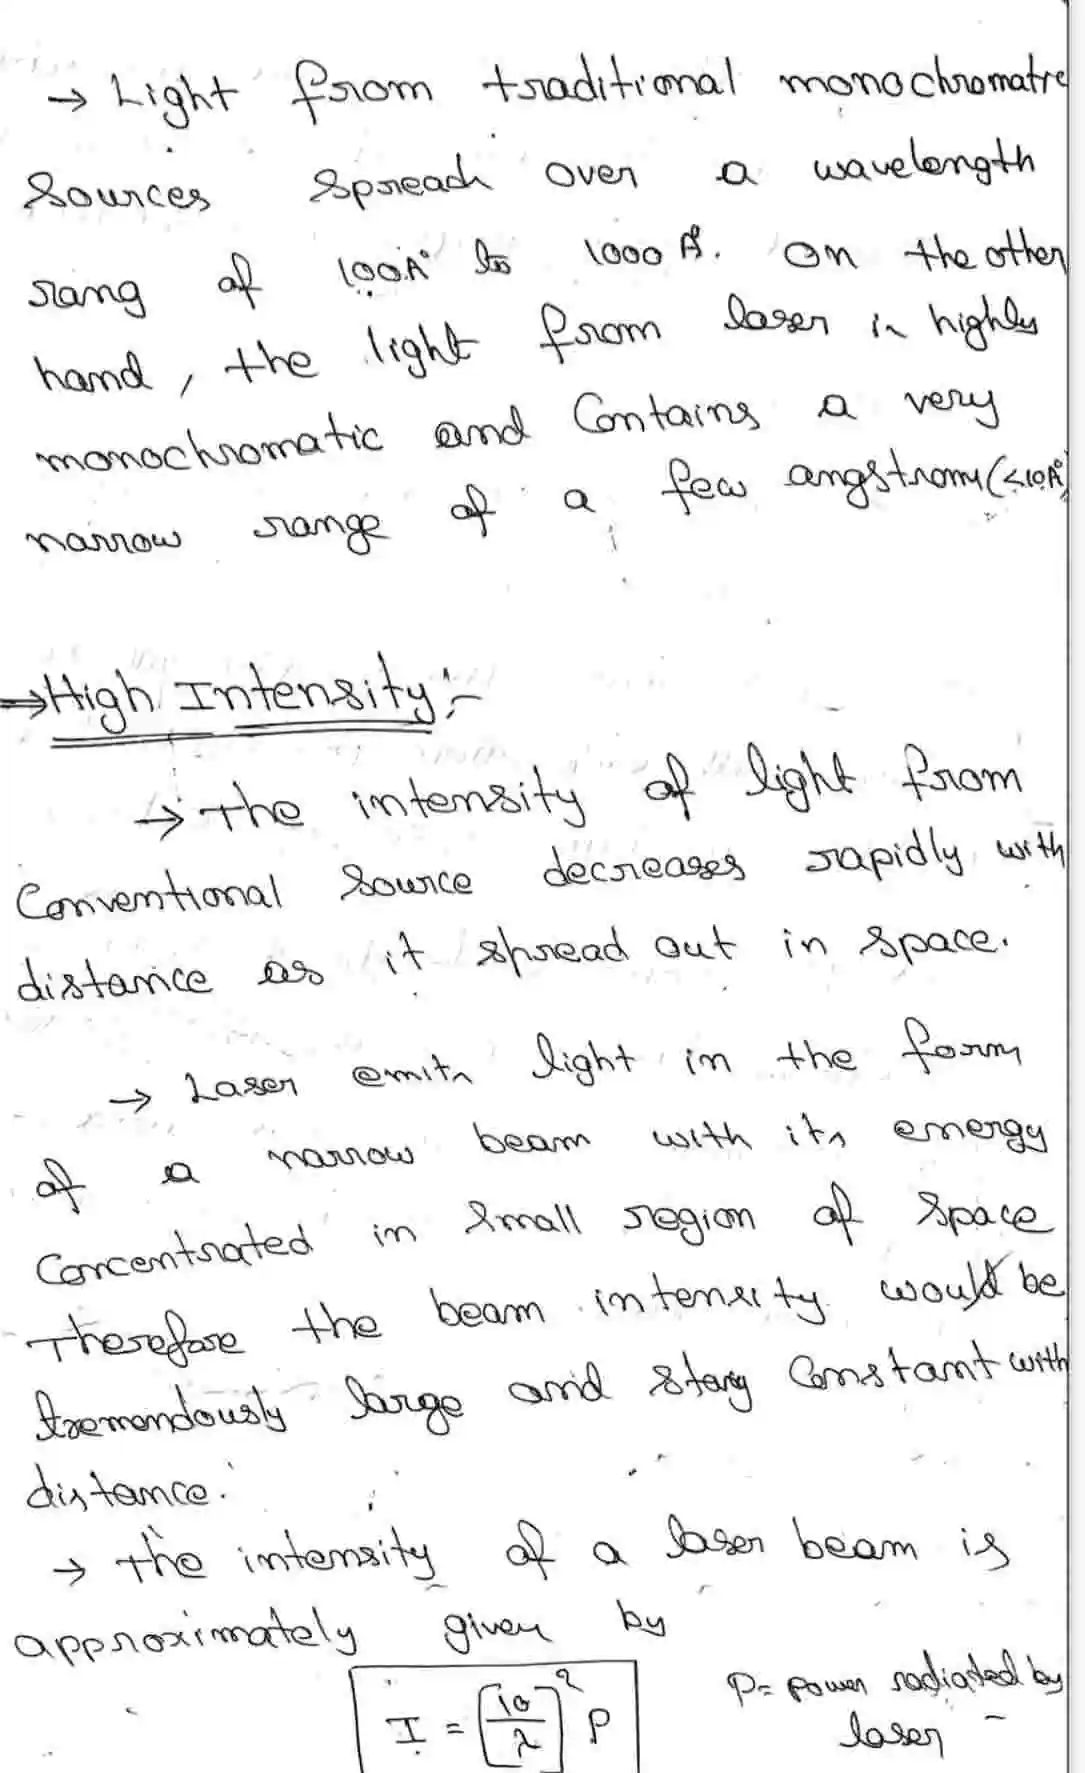 → Light from traditional monochromatic
Sources spread over a wavelength
rang of 100A° to 1000 A°. on the other
hand, the light from laser is highly
monochromatic and Contains a very
narrow range of a few angstrom (<10A°)
⇒ High Intensity :-
→ The intensity of light from
Conventional Source decreases rapidly with
distance as it spread out in space.
→ Laser emits light in the form
of a narrow beam with its energy
Concentrated in small region of space
Therefore the beam intensity would be
tremendously large and stay Constant with
distance.
→ the intensity of a laser beam is
approximately given by
I = [10/λ]² P
P = power radiated by
laser